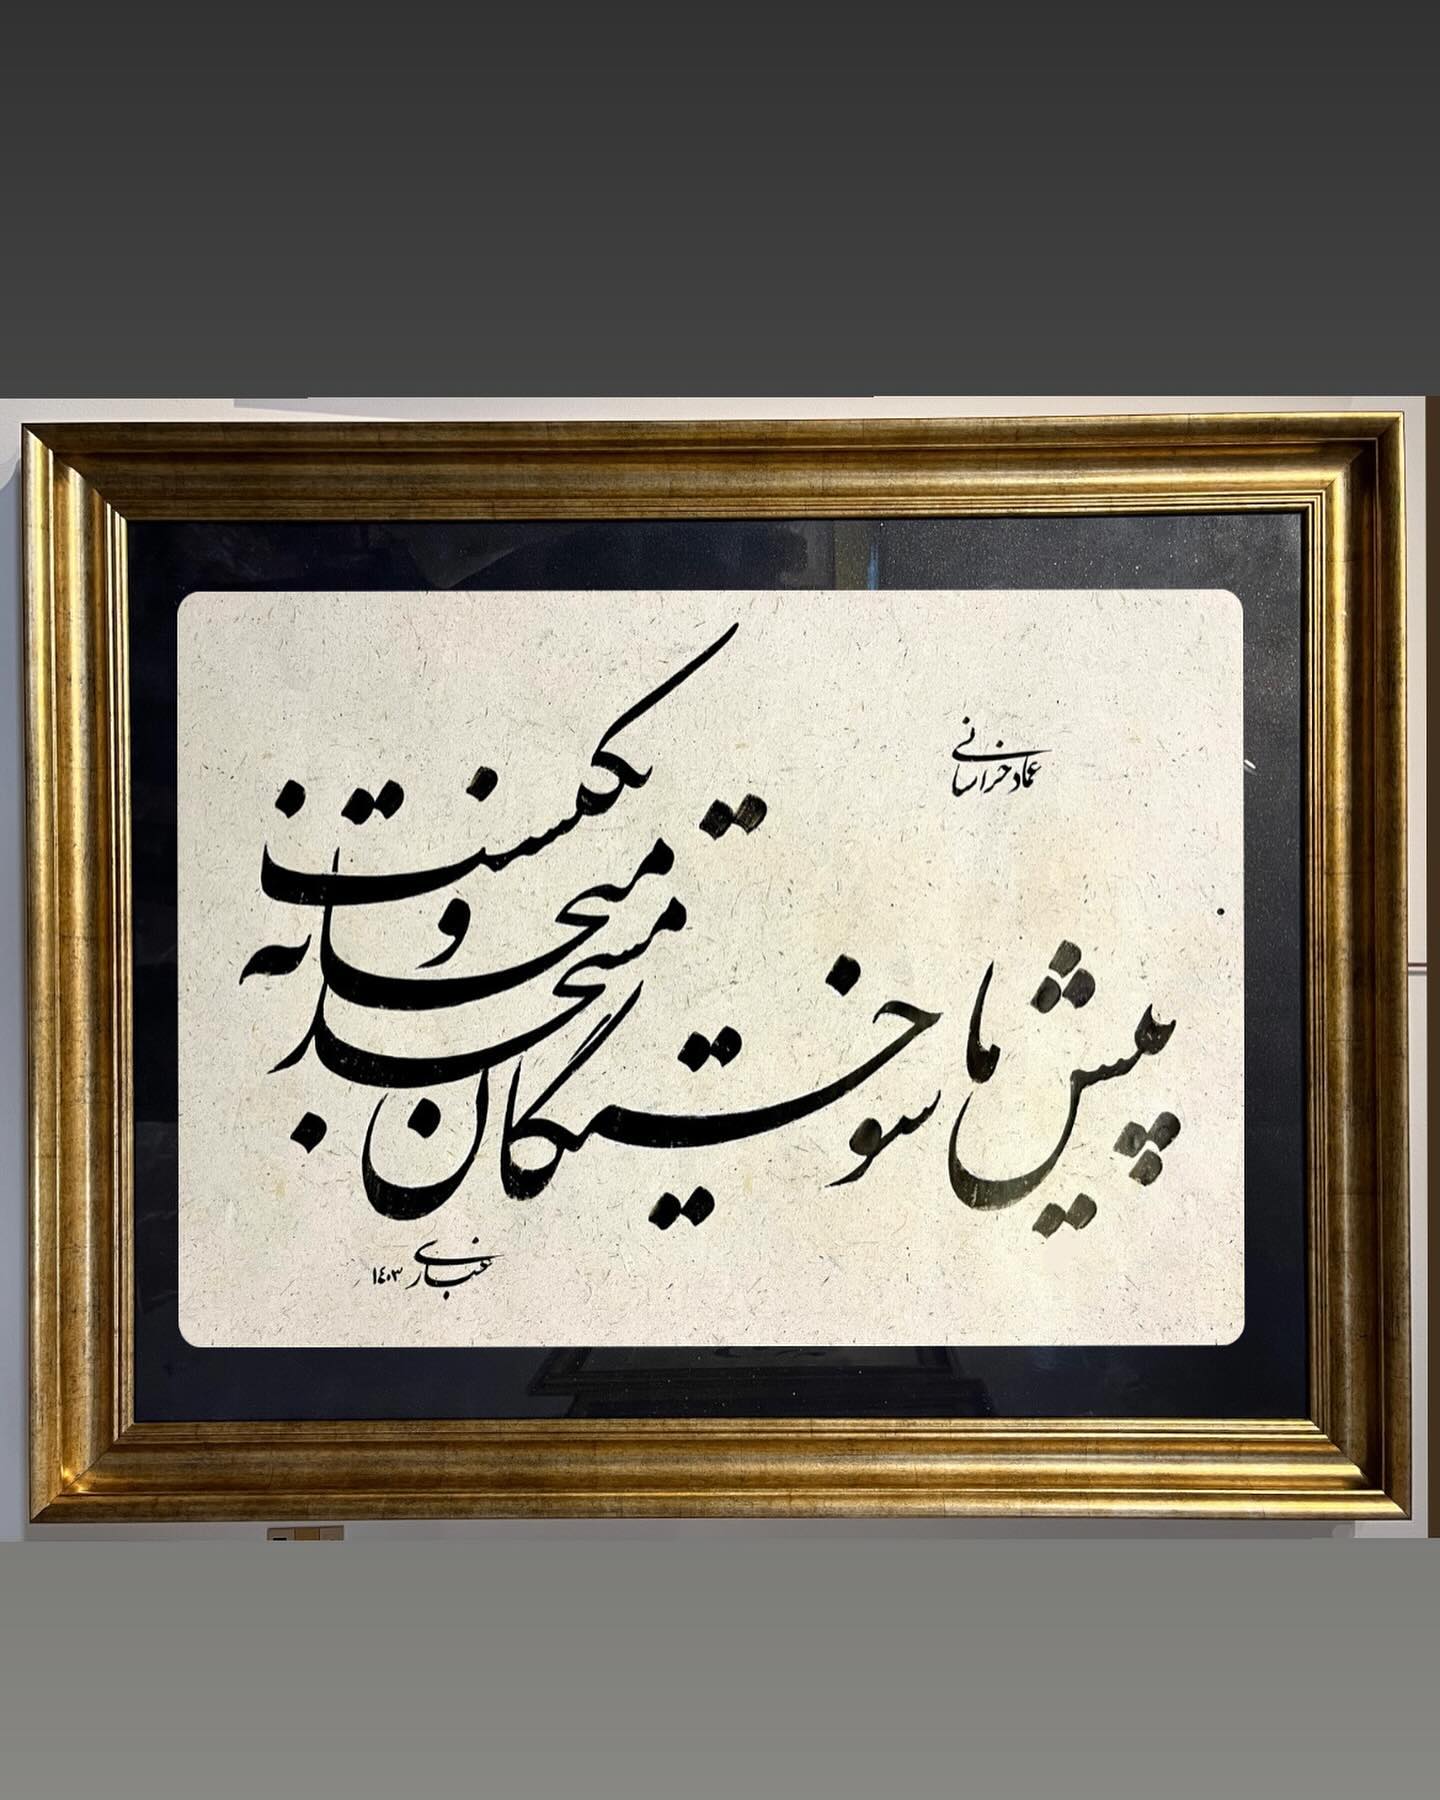 پیش ما سوختگان مسجد و میخانه یکیست
عماد خراسانی
غباری ۱۴۰۳